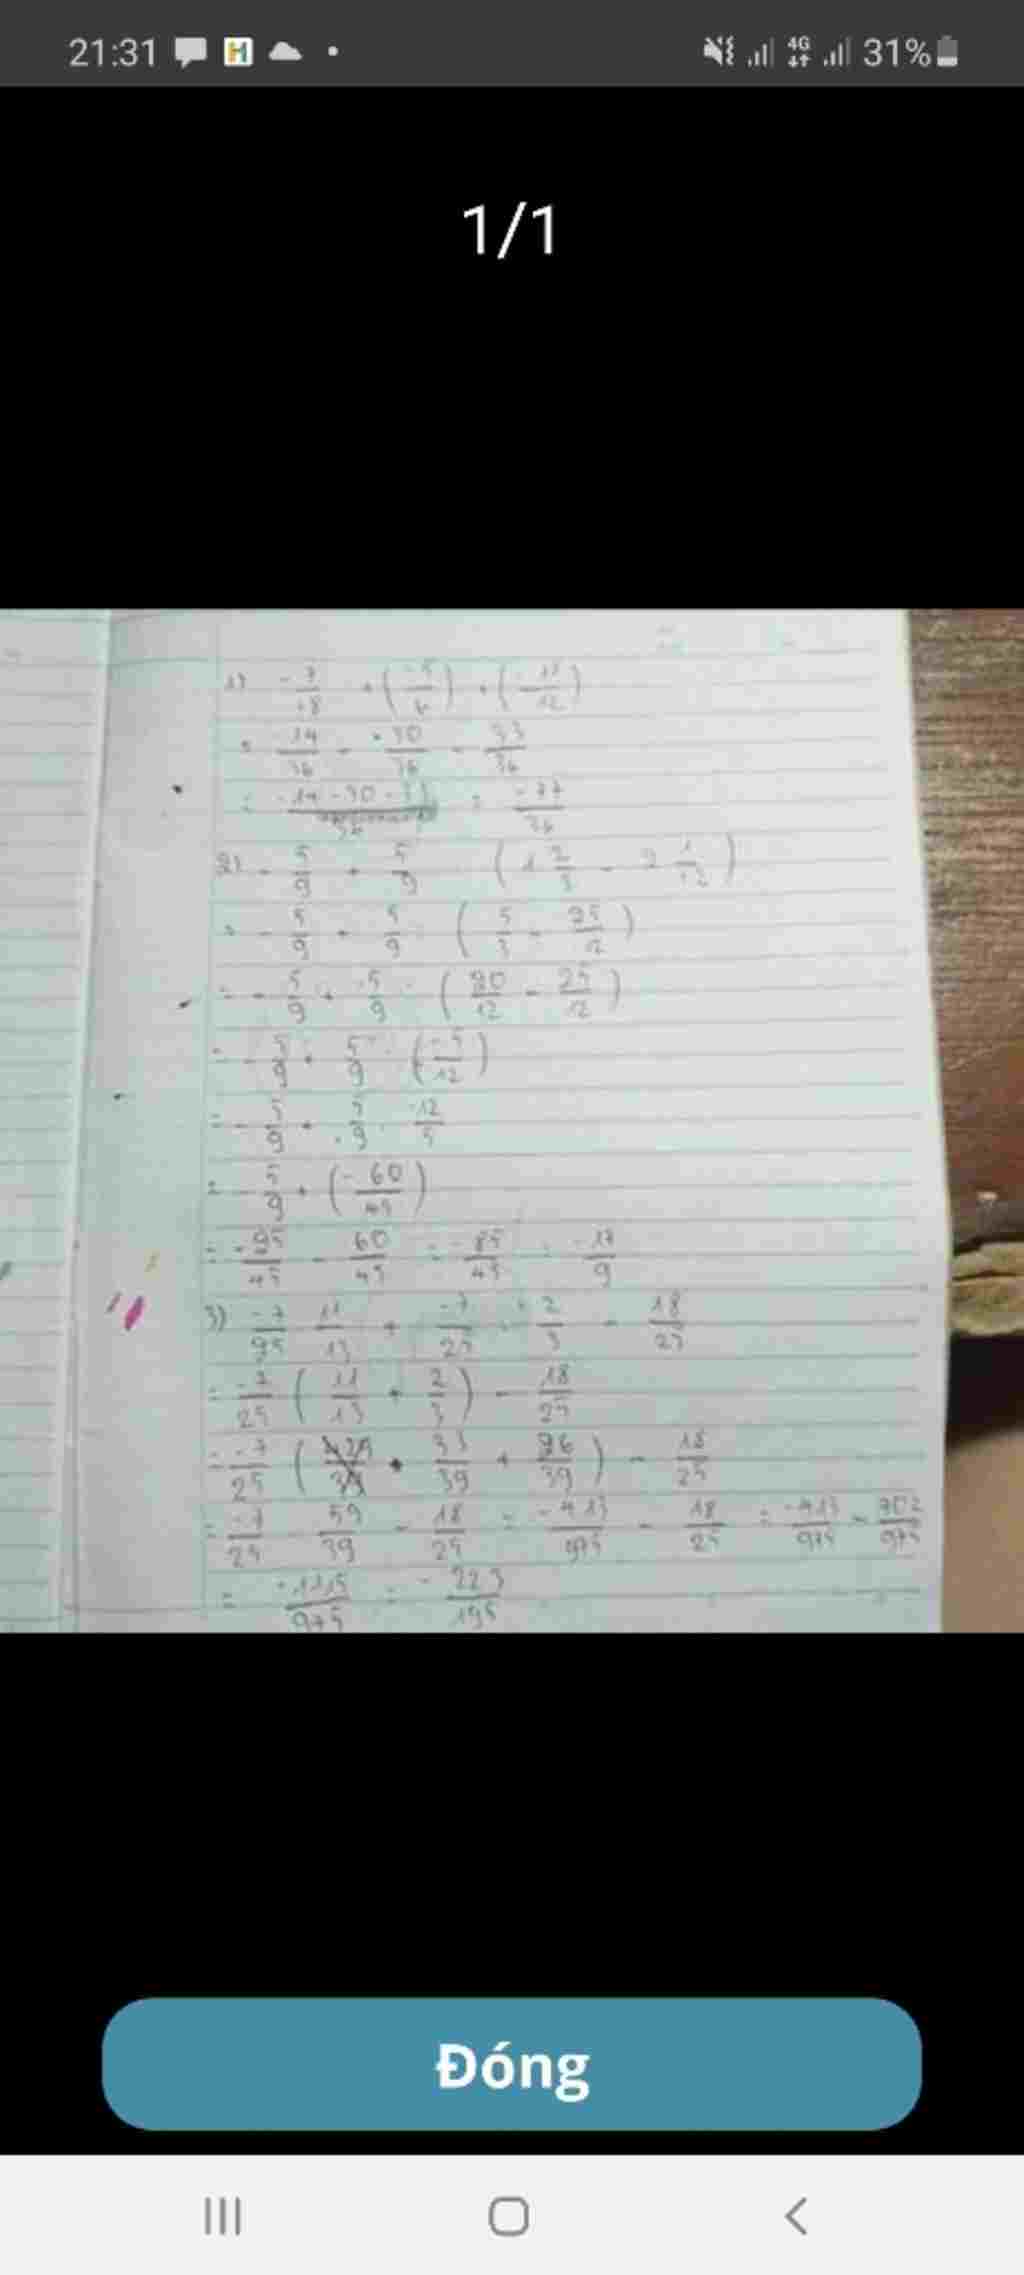 21:31 H 4G 31%
1/1
1) -7/18 + (-5/6) + (-11/12)
= -14/36 - 30/36 - 33/36
= -14-30-33/36 = -77/36
2) -5/9 + 5/9 : (1 2/3 - 2 1/12)
= -5/9 + 5/9 : (5/3 - 25/12)
= -5/9 + 5/9 : (20/12 - 25/12)
= -5/9 + 5/9 : (-5/12)
= -5/9 + 5/9 . -12/5
= -5/9 + (-60/45)
= -25/45 - 60/45 = -85/45 = -17/9
3) -7/25 . 11/13 + -7/25 . 2/3 - 18/25
= -7/25 (11/13 + 2/3) - 18/25
= -7/25 (33/39 + 26/39) - 18/25
= -7/25 . 59/39 - 18/25 = -413/975 - 18/25 = -413/975 - 702/975
= -1115/975 = -223/195
Đóng